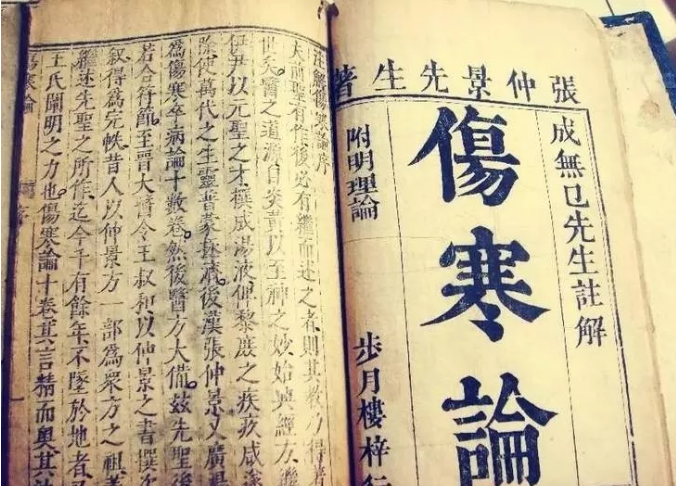 張仲景先生著
成無已先生註解
傷寒論
附明理論
步月樓梓行
注解傷寒論序
夫前聖有作後必有繼而述之者則其教乃得著
世矣醫之道源自炎黃以至神之妙始興經方繼
伊尹以元聖之才撰成湯液俾黎庶之疾疚咸
除使萬代之生靈普蒙拯濟後漢張仲景又廣湯
為傷寒卒病論十數卷然後醫方大備茲先聖後
若合符節至晉大醫令王叔和以仲景之書撰次
敘得為完帙昔人以仲景方一部為眾方之祖蓋
繼述先聖之所作迄今千有餘年不墜於地者又
王氏闡明之力也傷寒論十卷其言精而奧其法
傷寒論 序